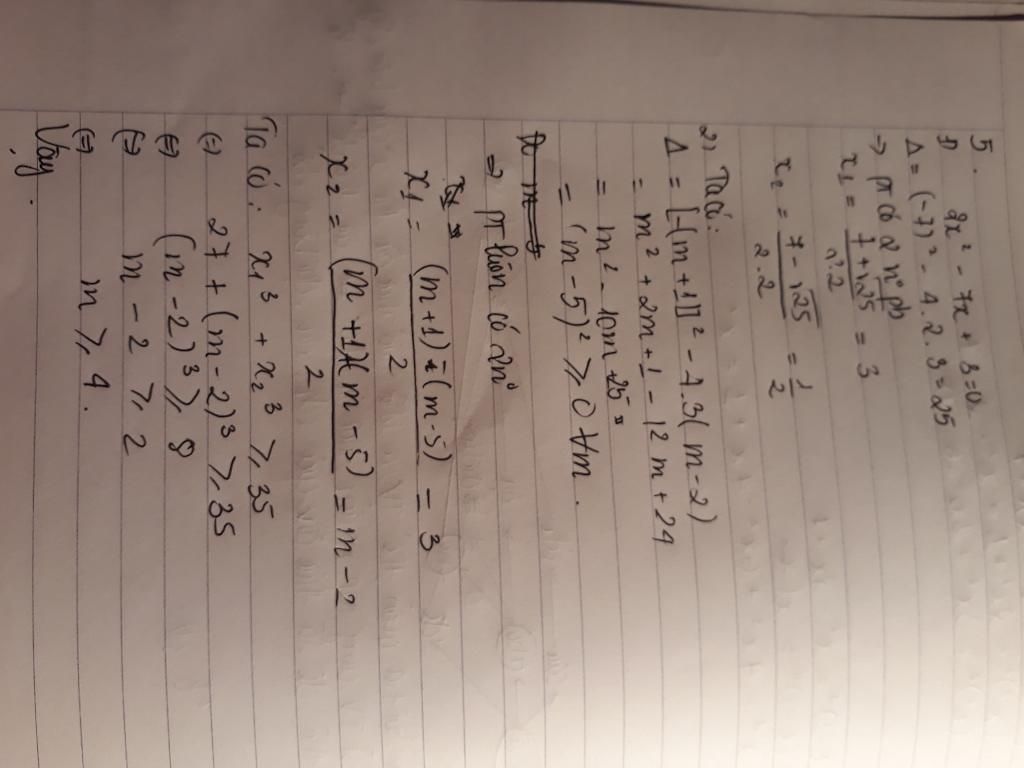 5.
1) 2x² - 7x + 3 = 0
Δ = (-7)² - 4.2.3 = 25
→ pt có 2 n° pb
x₁ = (7 + √25)/(2.2) = 3
x₂ = (7 - √25)/(2.2) = 1/2
2) Ta có:
Δ = [-(m+1)]² - 4.3(m-2)
= m² + 2m + 1 - 12m + 24
= m² - 10m + 25
= (m-5)² ≥ 0 ∀m.
⇒ pt luôn có 2n°
x₁ = ((m+1) - (m-5))/2 = 3
x₂ = ((m+1)+(m-5))/2 = m - 2
Ta có: x₁³ + x₂³ ≥ 35
(-) 27 + (m-2)³ ≥ 35
⇔ (m-2)³ ≥ 8
⇔ m - 2 ≥ 2
⇔ m ≥ 4.
Vậy.